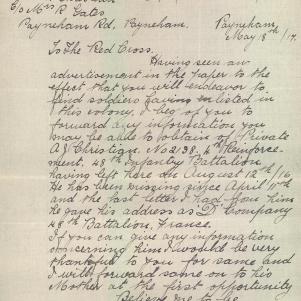 c/o Mrs R Gates
Payneham Rd, Payneham. Payneham,
May 18th/17.
To The Red Cross.
Having seen an
advertisement in the paper to the
effect that you will endeavor to
find soldiers having enlisted in
this colony, I beg of you to
forward any information you
may be able to obtain of Private
A J Christian. No 2138. 6th Reinforce-
ment. 48th Infantry Battalion
having left here in August 12th/16.
He has been missing since April 11th
and the last letter I had from him
he gave his address as D Company
48th Battalion, France.
If you can give any information
concerning him I would be very
thankful to you for same and
I will forward same on to his
Mother at the first opportunity
Believe me to be